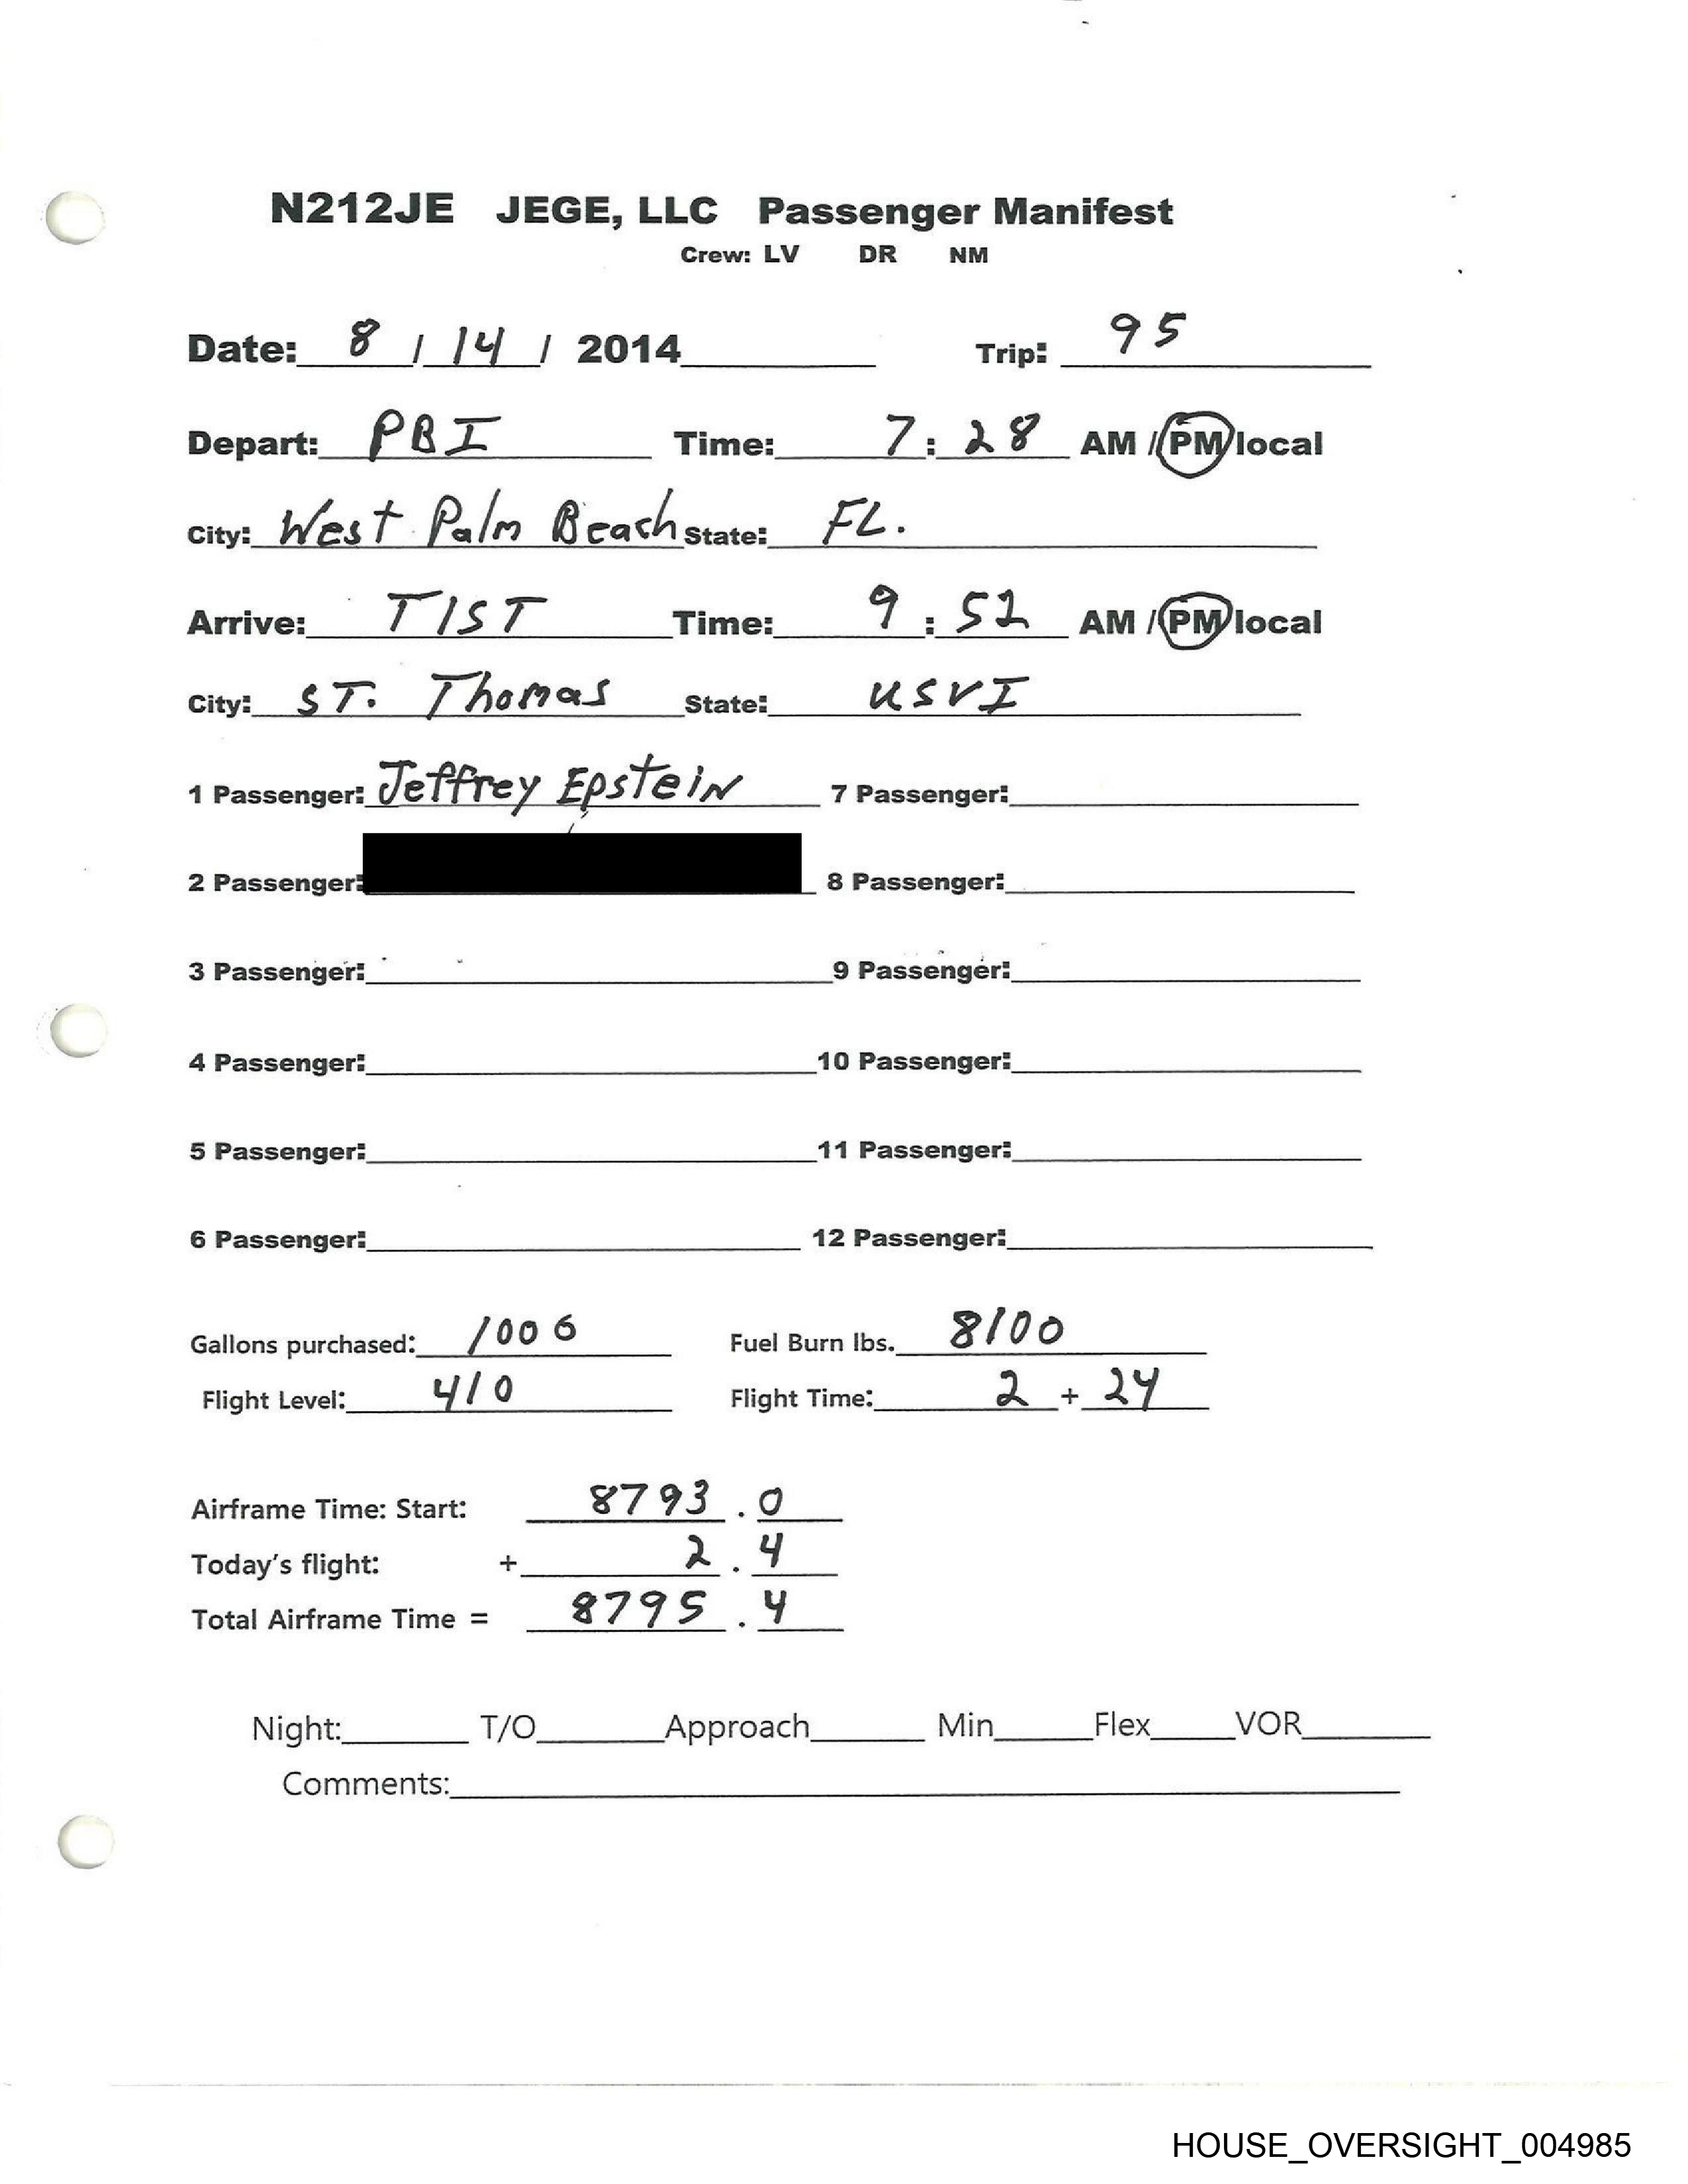 N212JE JEGE, LLC Passenger Manifest
Crew: LV DR NM
Date: 8 / 14 / 2014 Trip: 95
Depart: PBI Time: 7:28 AM / PM local
City: West Palm Beach State: FL.
Arrive: TIST Time: 9:52 AM / PM local
City: ST. Thomas State: USVI
1 Passenger: Jeffrey Epstein 7 Passenger:
2 Passenger: 8 Passenger:
3 Passenger: 9 Passenger:
4 Passenger: 10 Passenger:
5 Passenger: 11 Passenger:
6 Passenger: 12 Passenger:
Gallons purchased: 1006 Fuel Burn lbs. 8100
Flight Level: 410 Flight Time: 2 + 24
Airframe Time: Start: 8793.0
Today's flight: + 2.4
Total Airframe Time = 8795.4
Night: T/O Approach Min Flex VOR
Comments:
HOUSE_OVERSIGHT_004985